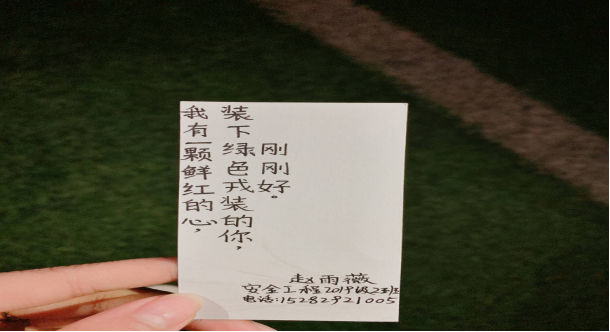 我有一颗鲜红的心，
装下绿色戎装的你，
刚刚好。
赵雨薇
安全工程2019级2班
电话：15282921005